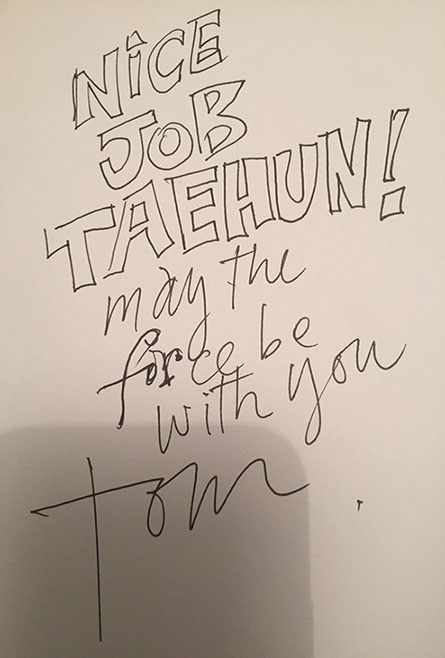 NiCE
JOB
TAEHUN!
may the
force be
with you
Tom.